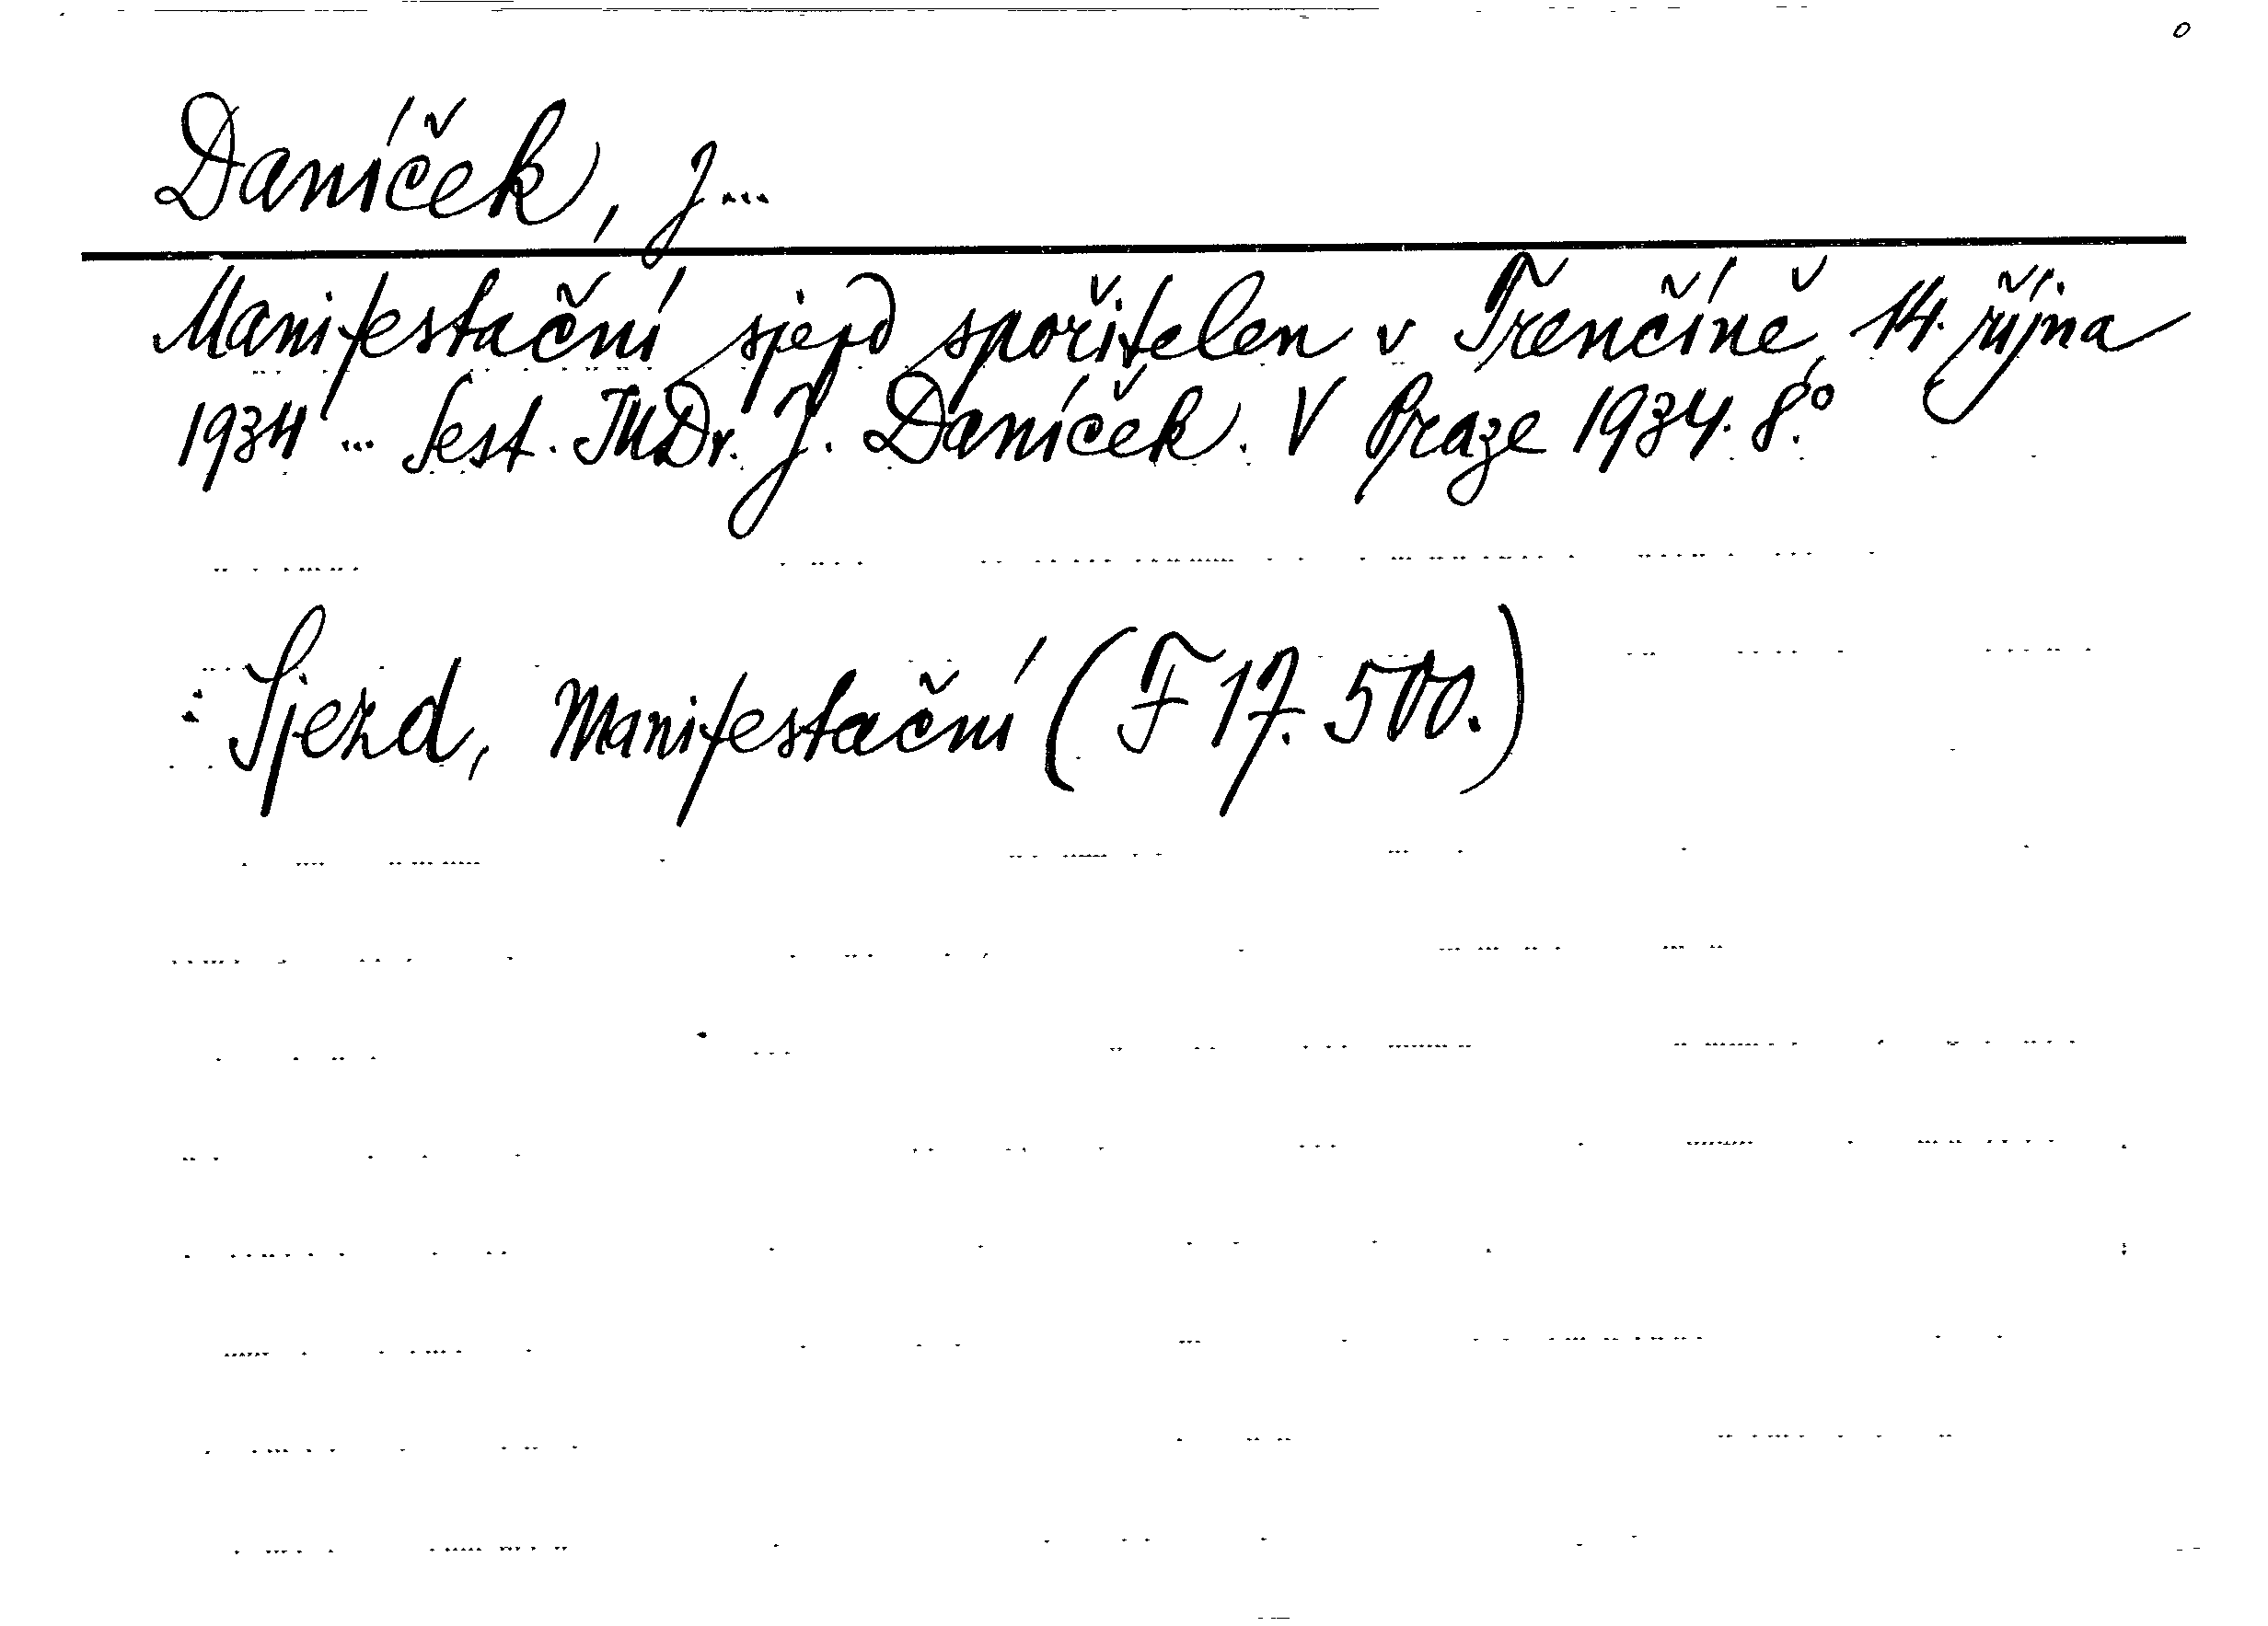 Daníček, J...
Manifestační sjezd spořitelen v Trenčíně, 14. října
1934 ... Sest. JUDr. J. Daníček. V Praze 1934. 8.°
: Sjezd, Manifestační (F 17. 500.)